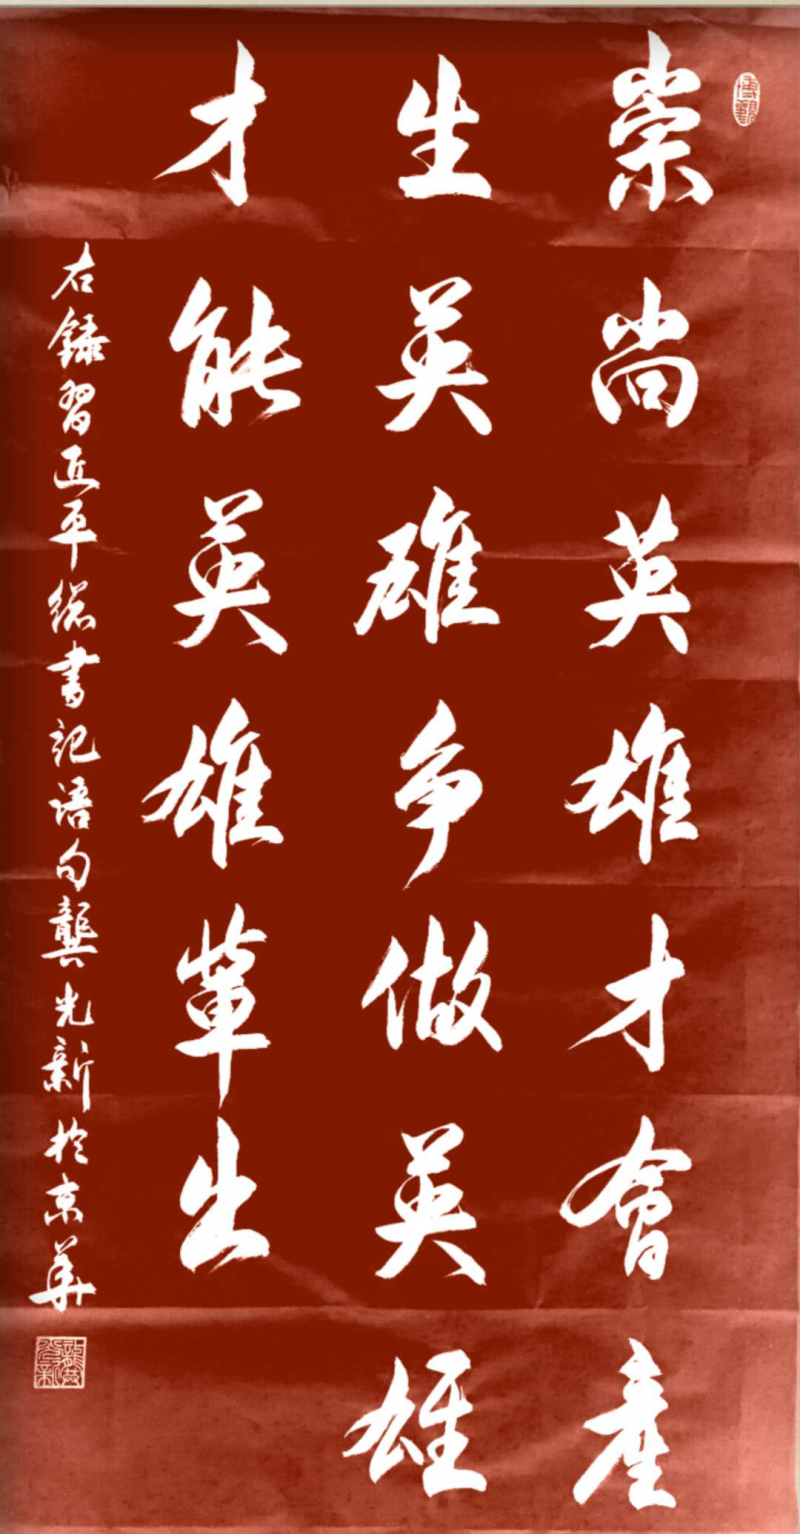 崇尚英雄才會產
生英雄争做英雄
才能英雄輩出
右録習近平總書記語句龔光新於京華
博觀
龔光新